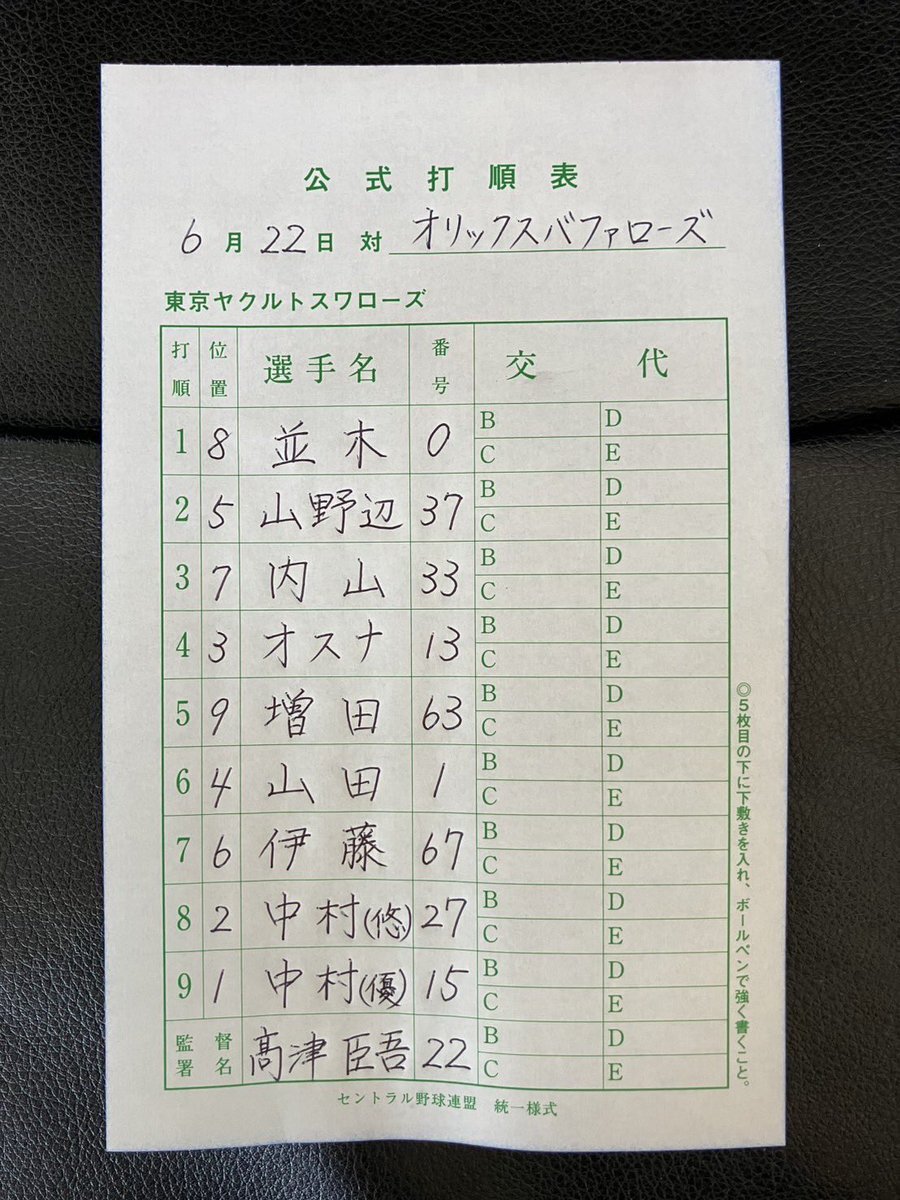 公式打順表
6月22日 対 オリックスバファローズ
東京ヤクルトスワローズ
打順 位置 選手名 番号 交代
1 8 並木 0 B D
C E
2 5 山野辺 37 B D
C E
3 7 内山 33 B D
C E
4 3 オスナ 13 B D
C E
5 9 増田 63 B D
C E
6 4 山田 1 B D
C E
7 6 伊藤 67 B D
C E
8 2 中村(悠) 27 B D
C E
9 1 中村(優) 15 B D
C E
監督署名 髙津臣吾 22 B D
C E
セントラル野球連盟 統一様式
◎5枚目の下に下敷きを入れ、ボールペンで強く書くこと。